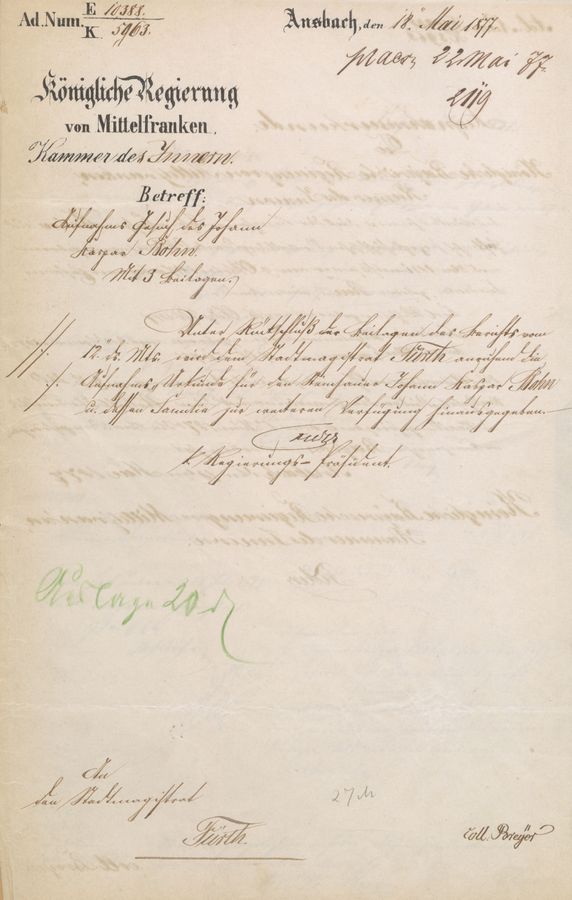 Ad. Num. E 10388.
K 5963.
Ansbach, den 18. Mai 1877
praes. 22 Mai 77.
Königliche Regierung
von Mittelfranken,
Kammer des Innern.
Betreff:
Aufnahms Gesuch des Johann
Kaspar Bohn.
Mit 3 Beilagen.
Unter Rückschluß der Beilagen des Berichts vom
12. ds. Mts. wird dem Stadtmagistrat Fürth anruhend die
Aufnahms-Urkunde für den Steinhauer Johann Kaspar Bohn
u. dessen Familie zur weiteren Verfügung hinausgegeben.
k. Regierungs-Präsident.
Auslage 20 d
An
den Stadtmagistrat
Fürth.
coll. Breyer